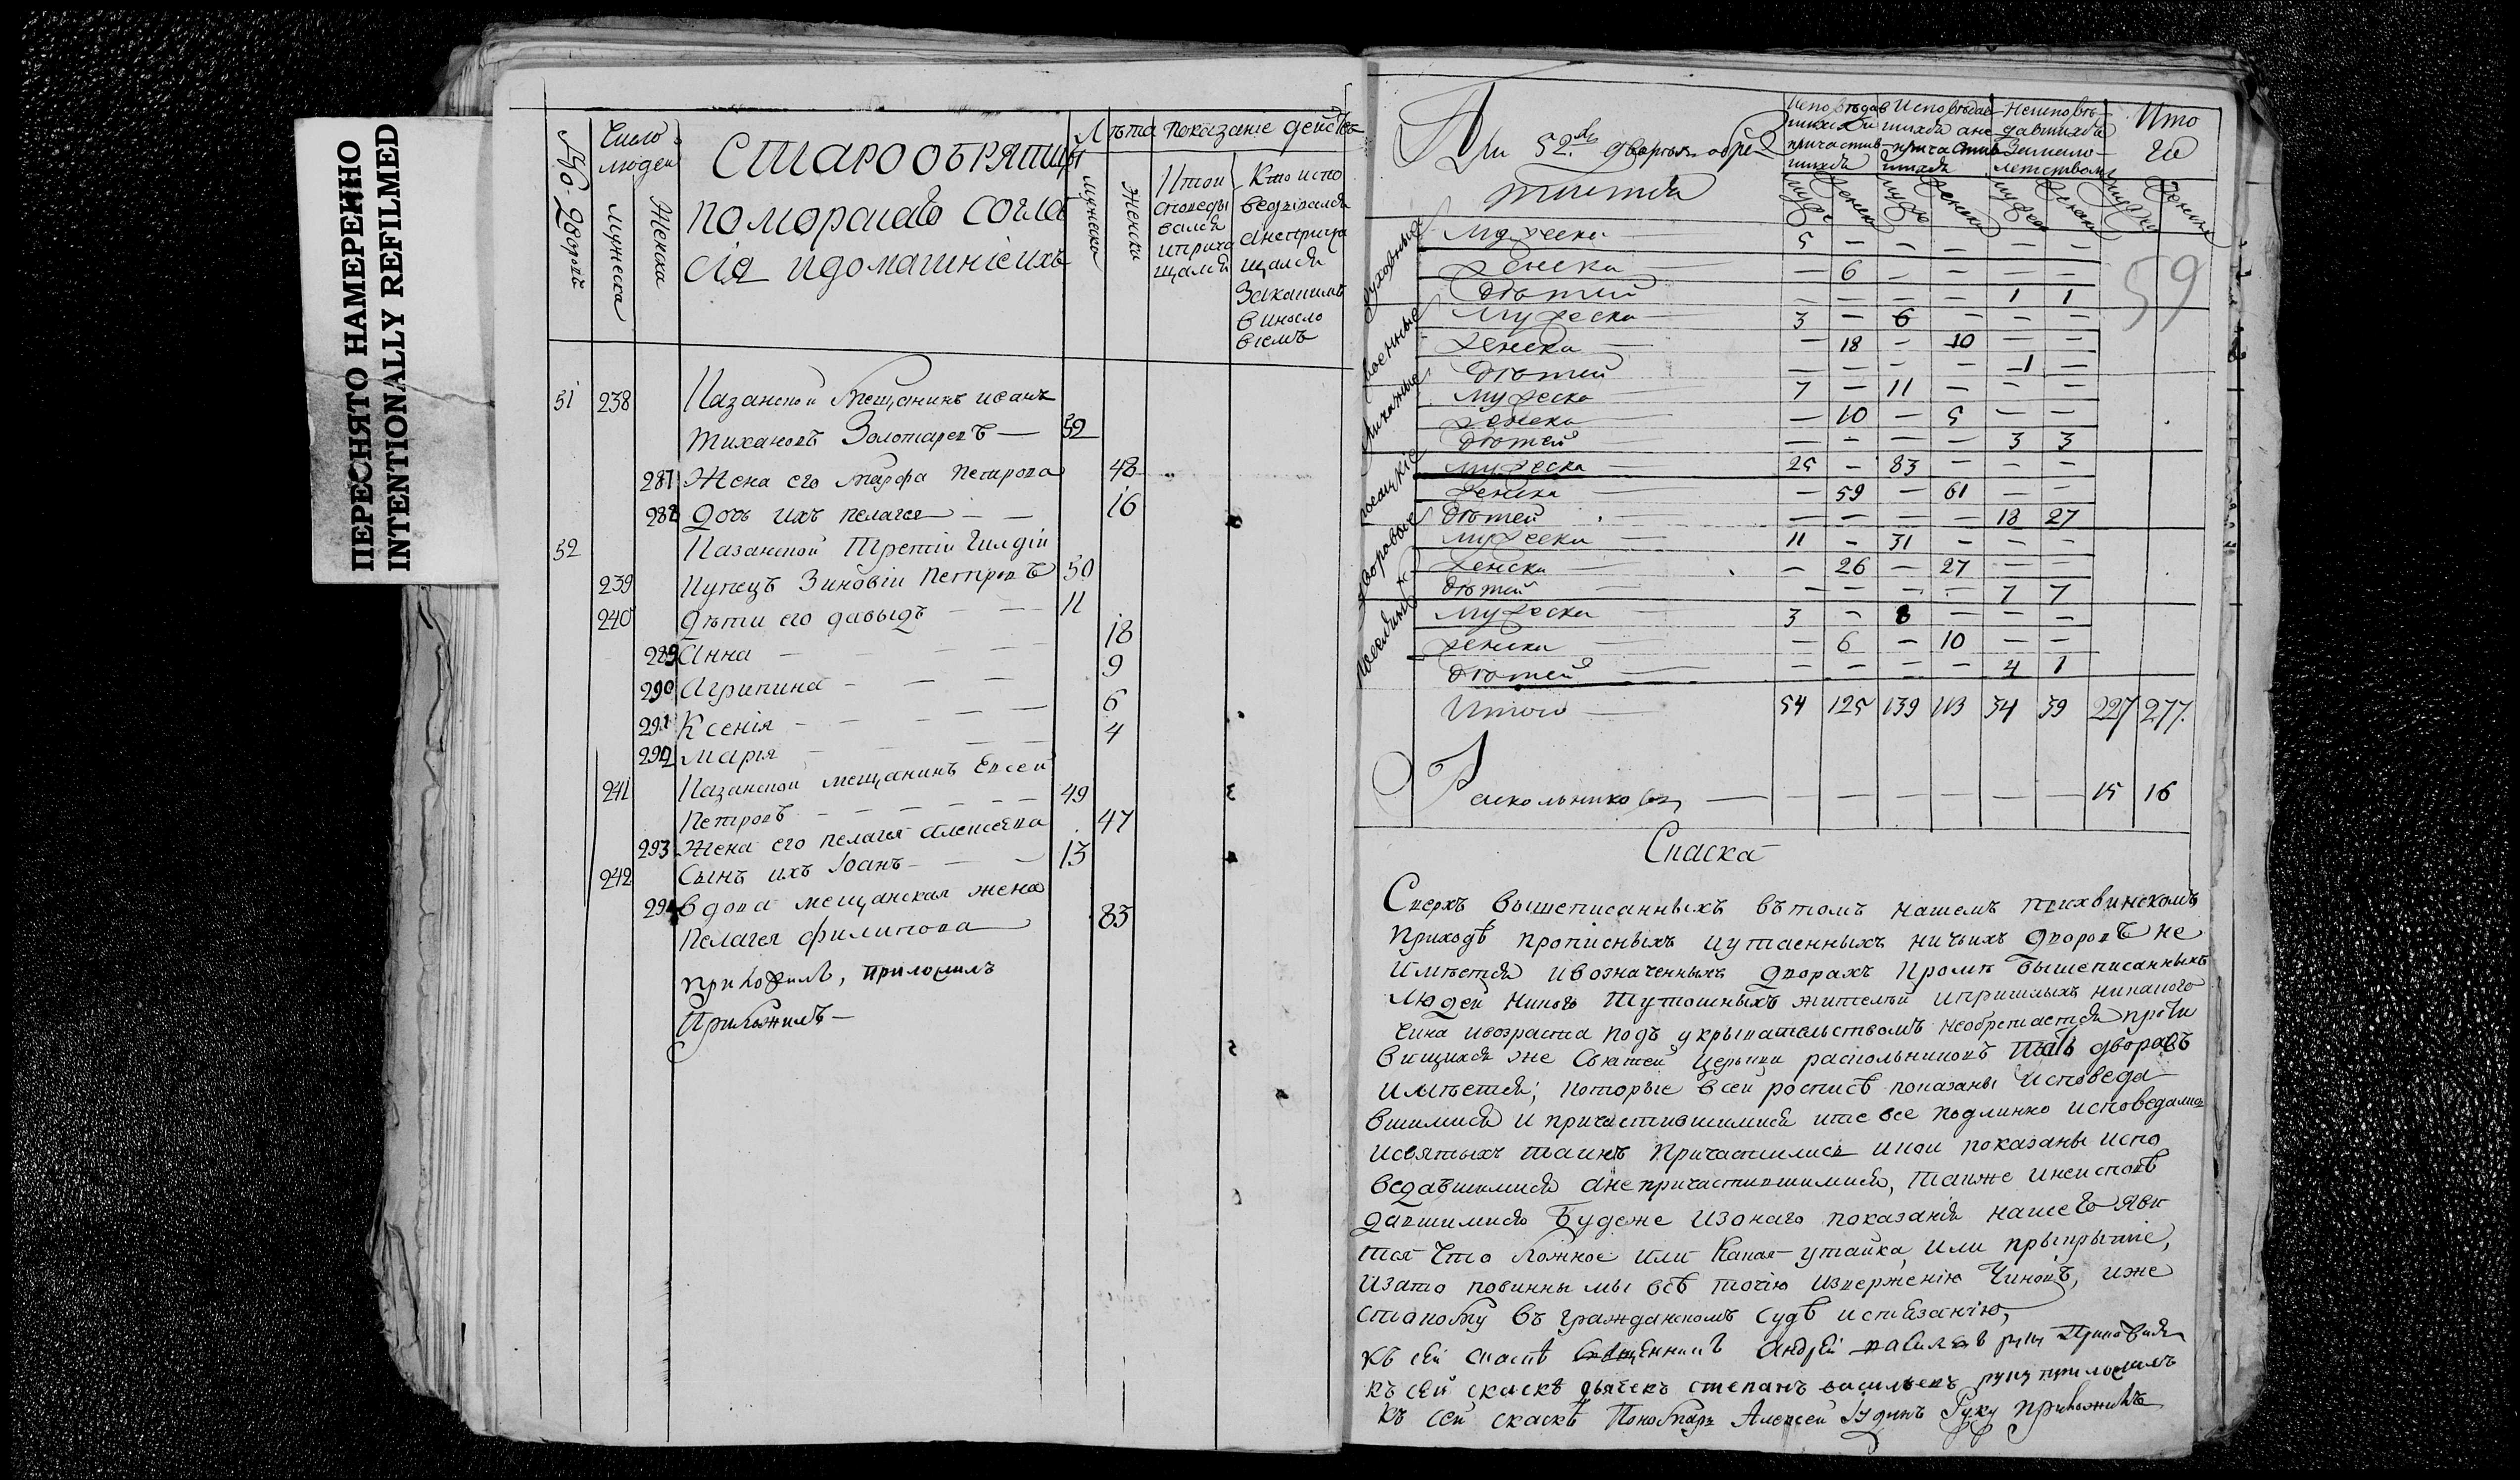 ПЕРЕСНЯТО НАМЕРЕННО
INTENTIONALLY REFILMED
№ дворовъ
Число людей
Мужеска
Женска
Старообрятцы
поморскаго согла
сія и домашніе ихъ
Лѣта
Мужеска
Женска
показаніе дейст
Кто и
споведы
вался
и прича
щался
Кто испо
ведывался
а неприча
щался
За какимъ
виносло
віемъ
51 238 Казанской мещанинъ исакъ
тихановъ Золотаревъ — 52
287 Жена его марфа петрова 48
288 Дочь ихъ пелагея — — 16
52 Казанской третіи гилдіи
239 Купецъ Зиновіи петровъ 50
240 Дѣти его давыдъ — — 11
289 Анна — — — — 18
290 Агрипина — — — 9
291 Ксенія — — — — 6
292 Марія — — — — 4
241 Казанской мещанинъ Евсей
петровъ — — — — — 49
293 Жена его пелагея алексеева 47
242 Сынъ ихъ Іоанъ — — — 13
294 вдова мещанская жена
пелагея филипова 83
приложилъ, приложилъ
Приложилъ —
При 52.хъ дворахъ обре
тается
Исповѣдав
шихся и
причастив
шихся
Исповѣдав
шихся а не
причастив
шихся
Неисповѣ
давшихся
За мало
летствомъ
Ито
го
59
духовные
Мужеска — 5 — — — — —
Женска — — 6 — — — —
Дѣтей — — — — 1 1
военные
Мужеска — 3 — 6 — — —
Женска — — 18 — 10 — —
Дѣтей — — — — 1 —
приказные
Мужеска — 7 — 11 — — —
Женска — — 10 — 5 — —
Дѣтей — — — — 3 3
посацкіе
Мужеска — 25 — 83 — — —
Женска — — 59 — 61 — —
Дѣтей — — — — 18 27
дворовые
Мужеска — 11 — 31 — — —
Женска — — 26 — 27 — —
Дѣтей — — — — 7 7
поселяне
Мужеска — 3 — 8 — — —
Женска — — 6 — 10 — —
Дѣтей — — — — 4 1
Итого — 54 125 139 113 34 39 227 277.
Раскольниковъ — — — — — — — 15 16
Скаска
Сверхъ вышеписанныхъ вътомъ нашемъ тихвинскомъ
приходѣ прописныхъ иутаенныхъ ничьихъ дворовъ не
имѣется ивозначенныхъ дворахъ кромѣ вышеписанныхъ
людей никого тутошныхъ жителей ипришлыхъ никакого
чина ивозраста подъ укрывательствомъ необретается проти
вящихся же Святей церькви раскольниковъ дворовъ
имѣется; которые всей росписѣ показаны исповеда
вшимися и причастившимися ите все подлинно исповедались
исвятыхъ таинъ причастились икои показаны испо
ведавшимися анепричастившимися, также инеисповѣ
давшимися будеже изонаго показанія нашего яви
тся что ложное или какая утайка, или прыкрытіе,
изато повинны мы всѣ точію изверженію чиновъ, иже
стокому въ гражданскомъ судѣ истязанію,
къ сей скаскѣ священникъ Андрей руку приложилъ
къ сей скаскѣ дьячекъ степанъ васильевъ руку приложилъ
къ сей скаскѣ Понамарь Алексей Юдинъ руку приложилъ